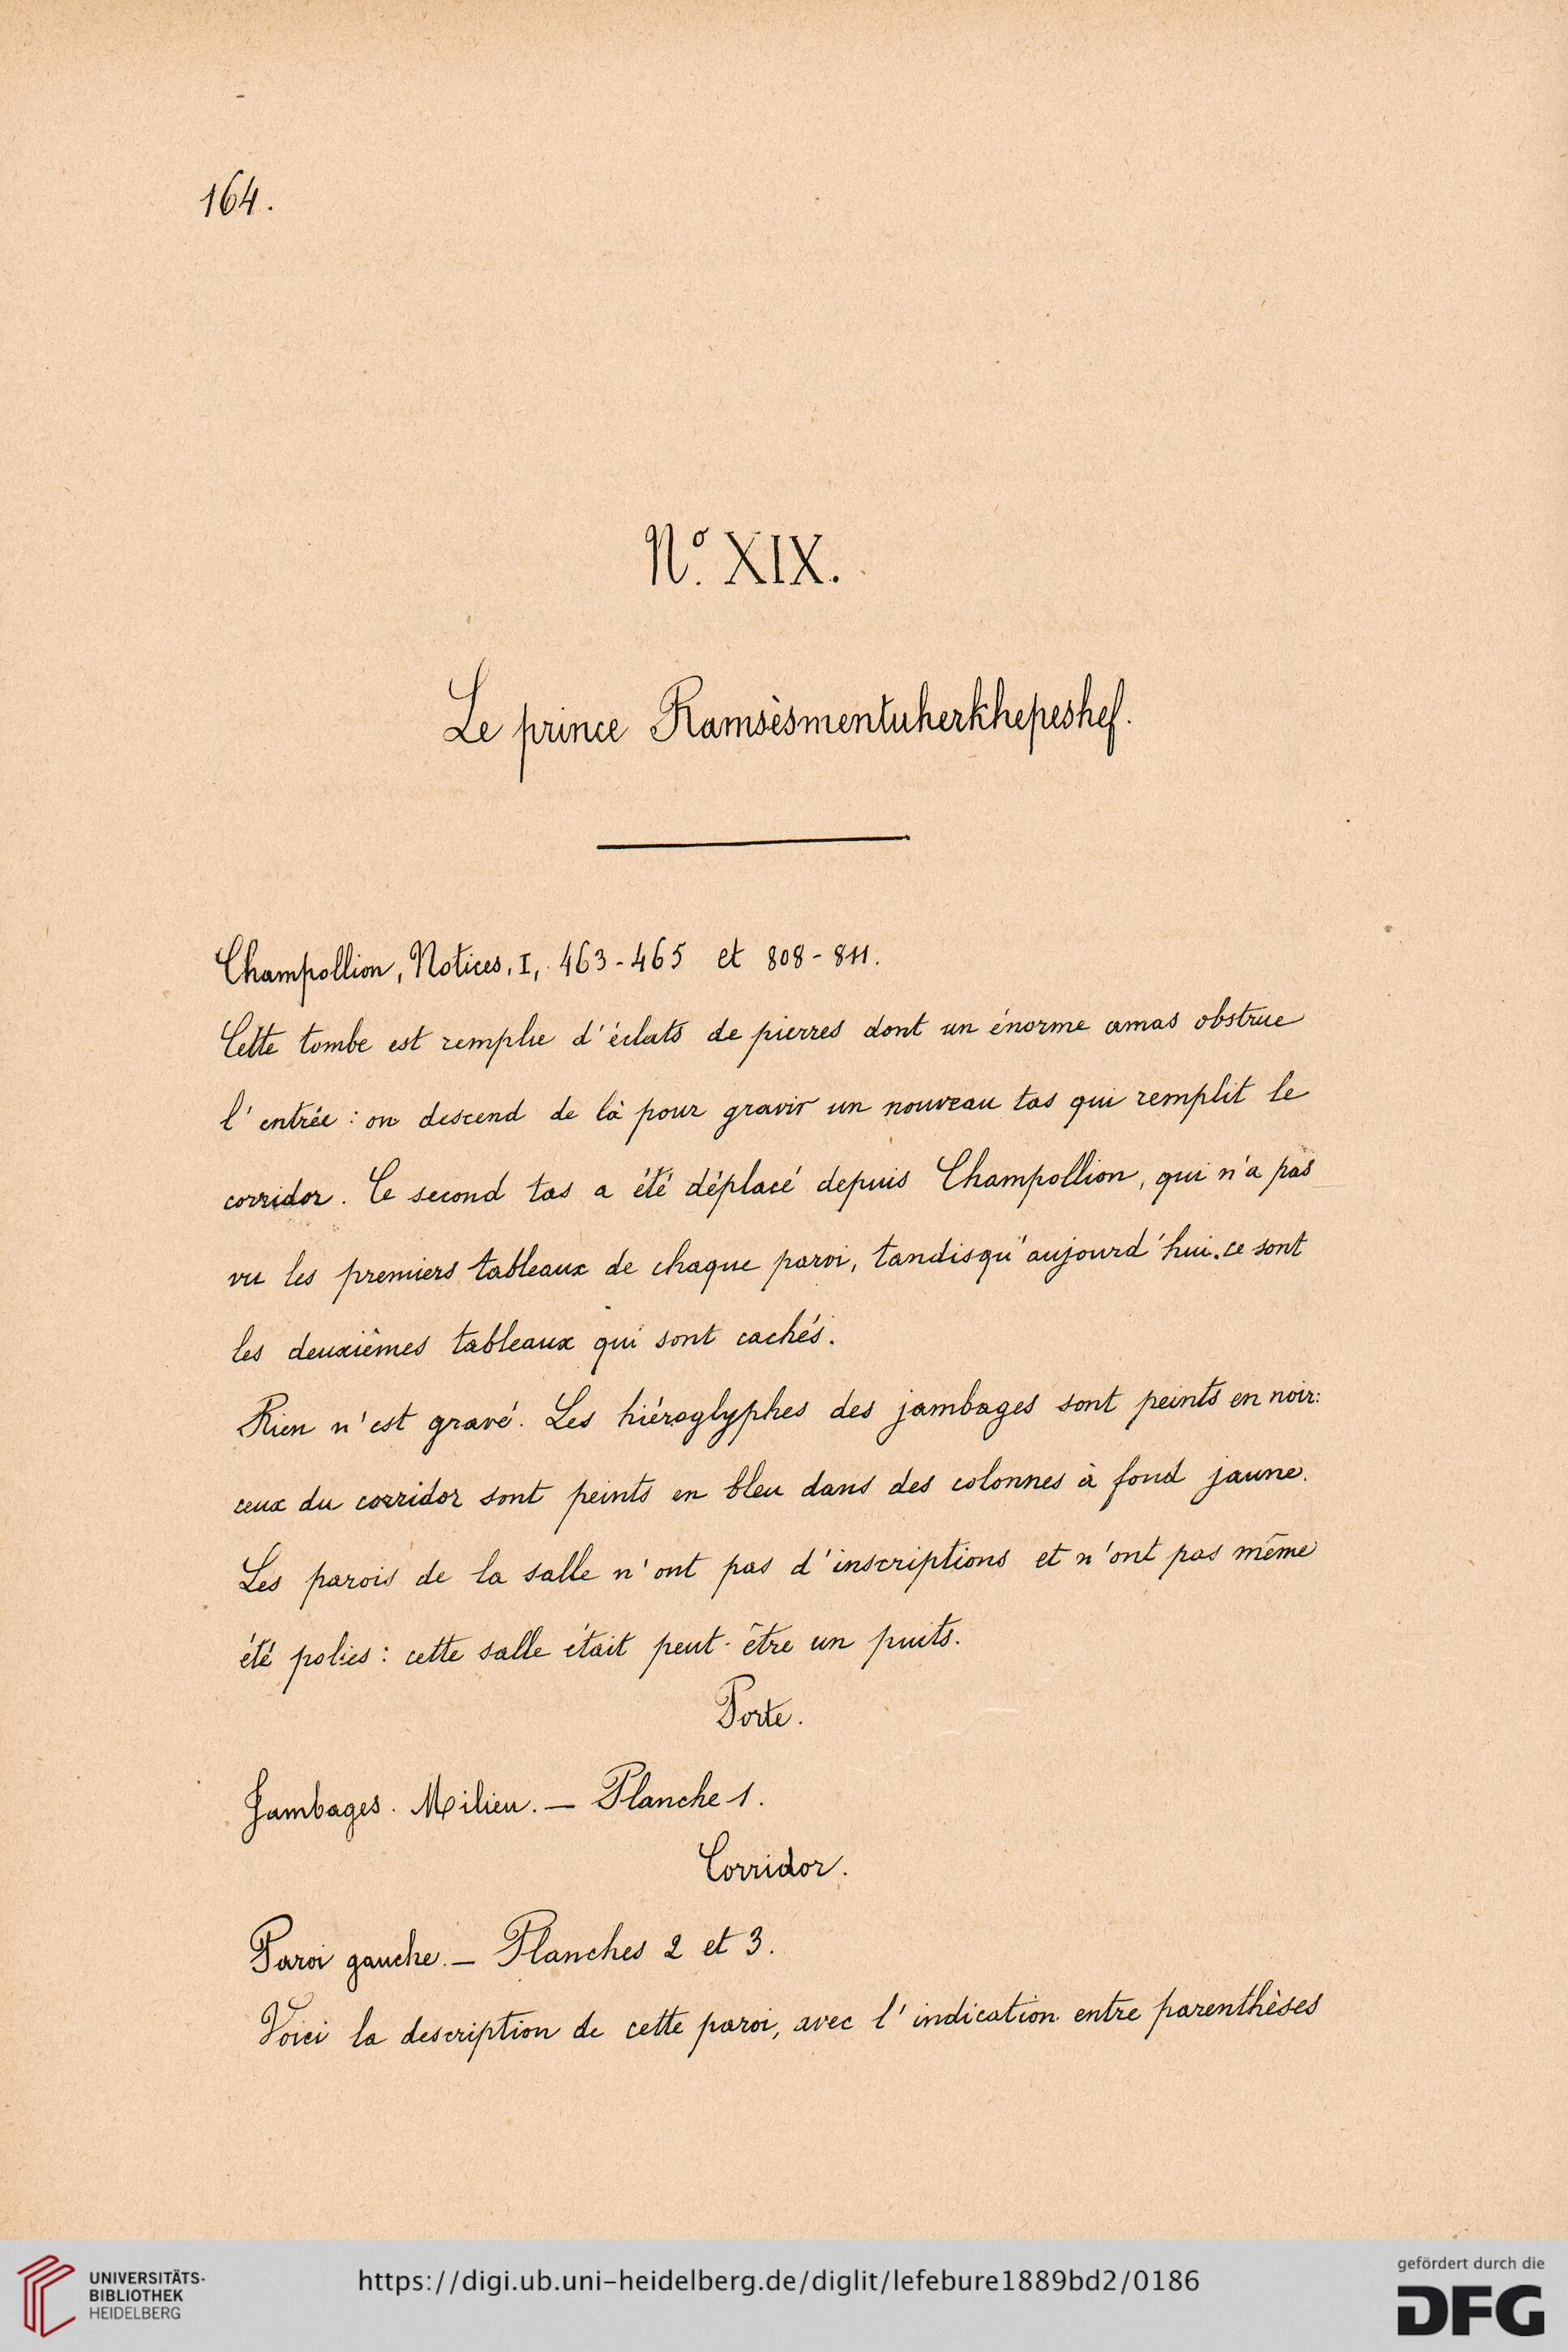 164.
N.º XIX.
Le prince Ramsèsmentuherkhepeshef.
Champollion, Notices, I, 463-465 et 808-811.
Cette tombe est remplie d'éclats de pierres dont un énorme amas obstrue
l'entrée : on descend de là pour gravir un nouveau tas qui remplit le
corridor. Ce second tas a été déplacé depuis Champollion, qui n'a pas
vu les premiers tableaux de chaque paroi, tandisqu'aujourd'hui ce sont
les deuxièmes tableaux qui sont cachés.
Rien n'est gravé. Les hiéroglyphes des jambages sont peints en noir:
ceux du corridor sont peints en bleu dans des colonnes à fond jaune.
Les parois de la salle n'ont pas d'inscriptions et n'ont pas même
été polies : cette salle était peut-être un puits.
Porte.
Jambages. Milieu. — Planche 1.
Corridor.
Paroi gauche. — Planches 2 et 3.
Voici la description de cette paroi, avec l'indication entre parenthèses
UNIVERSITÄTS-
BIBLIOTHEK
HEIDELBERG
https://digi.ub.uni-heidelberg.de/diglit/lefebure1889bd2/0186
gefördert durch die
DFG